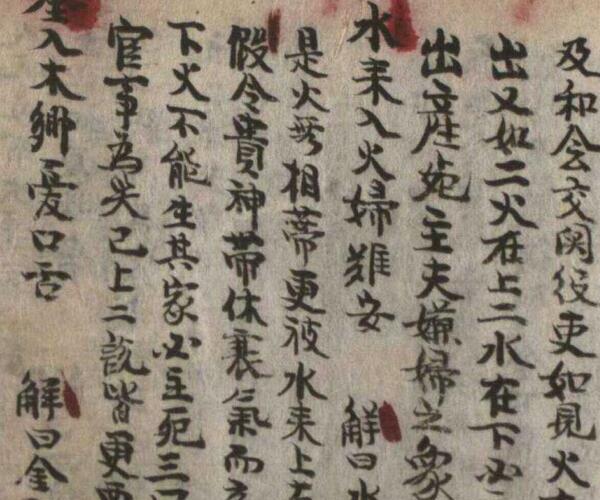 及和合交関役更如見火
出又如二火在上二水在下必
出產主夫嫌婦之象
水来入火婦難安　解曰水
是火相帶更被水来上
假令貴神帶休衰氣而
下火不能生其家必主死三口
官事為失已上二說皆更
金入木鄉憂口舌　解曰金